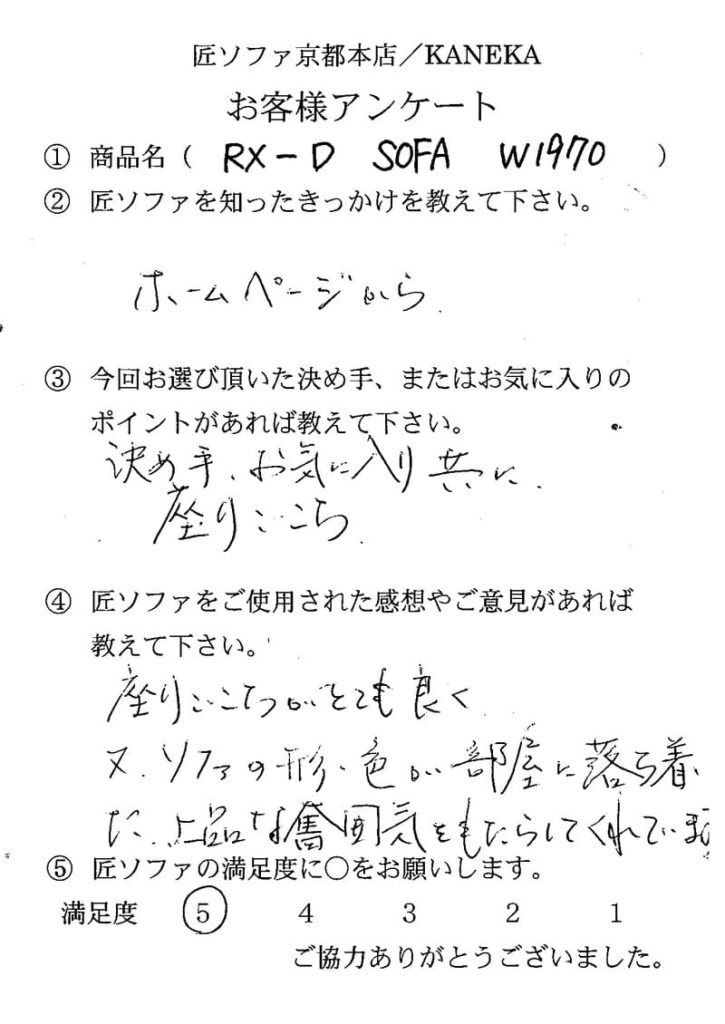 匠ソファ京都本店／KANEKA
お客様アンケート
① 商品名（ RX-D SOFA W1970 ）
② 匠ソファを知ったきっかけを教えて下さい。
ホームページから.
③ 今回お選び頂いた決め手、またはお気に入りの
ポイントがあれば教えて下さい。
決め手、お気に入り共に、
座りごこち
④ 匠ソファをご使用された感想やご意見があれば
教えて下さい。
座りごこちがとても良く
又、ソファの形・色が部屋に落ち着い
た、上品な奮囲気をもたらしてくれていま
⑤ 匠ソファの満足度に○をお願いします。
満足度 5 4 3 2 1
ご協力ありがとうございました。